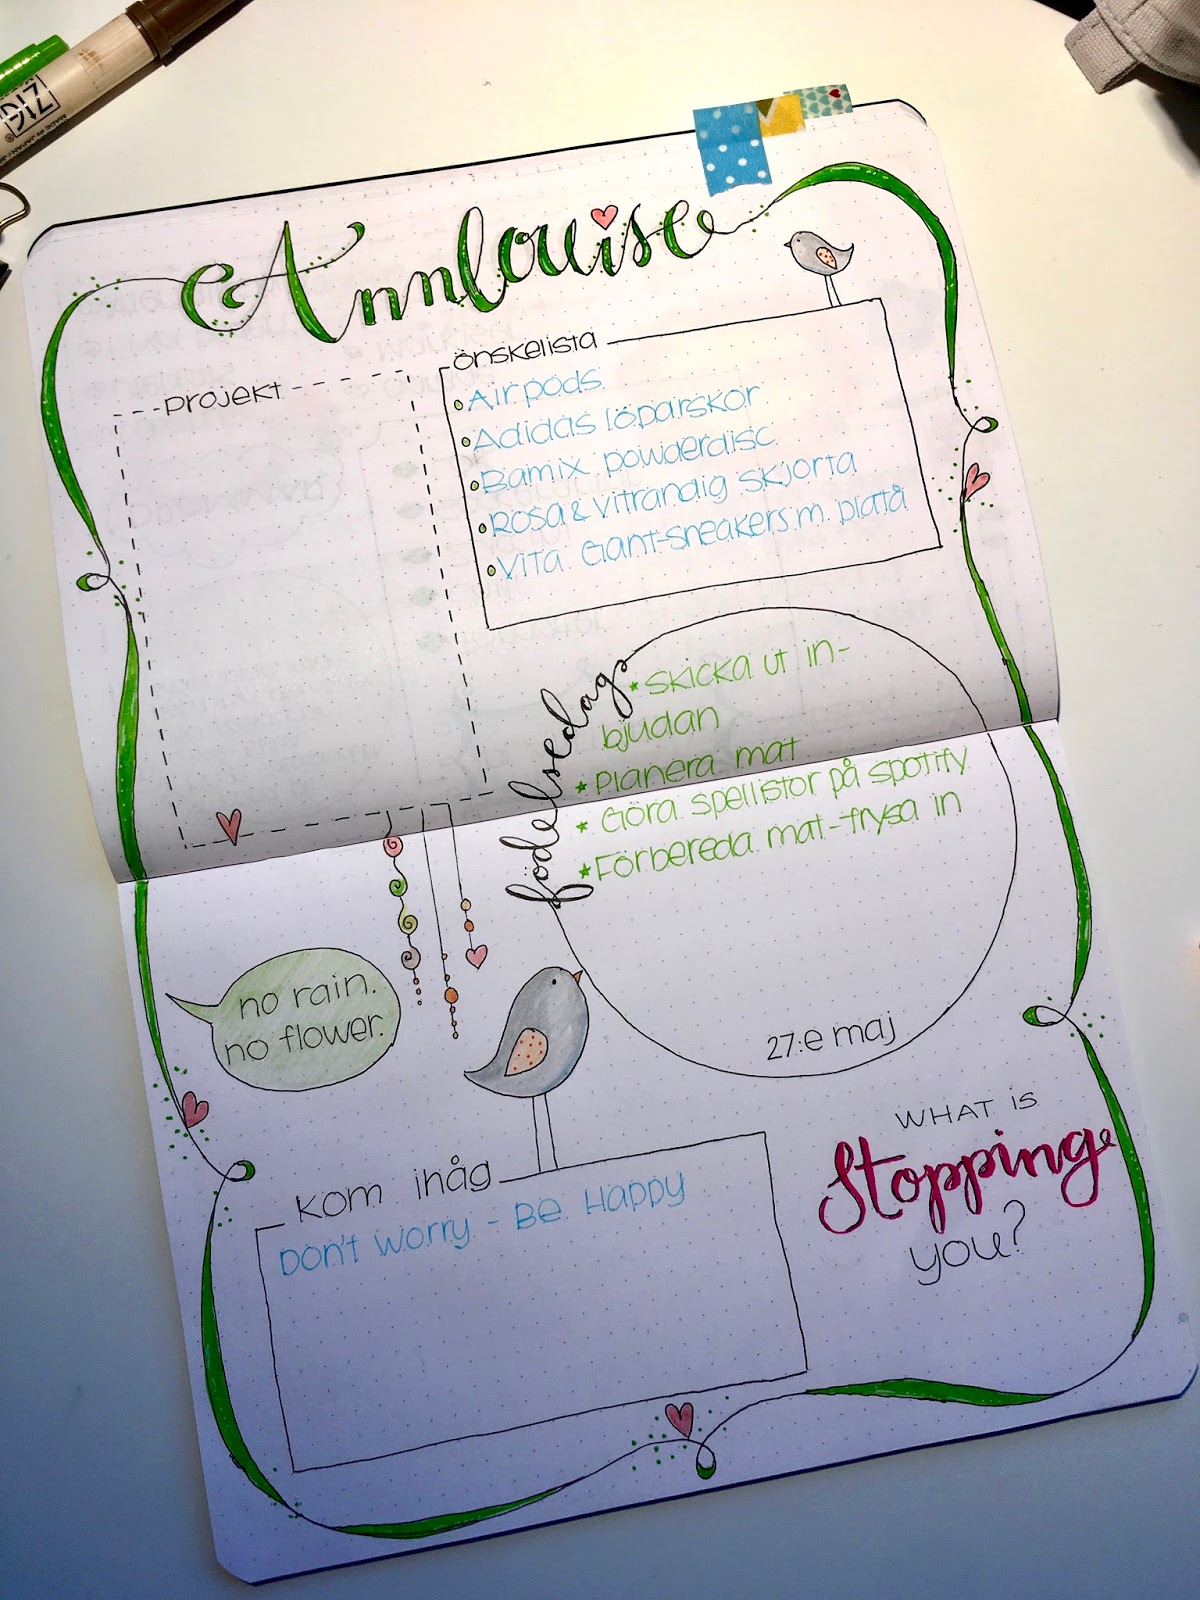 ZIG
MADE IN JAPAN
Annlouise
Projekt
önskelista
Airpods
Adidas löparskor
Bamix powderdisc
Rosa & vitrandig skjorta
Vita Gant-sneakers m. platå
födelsedag
* Skicka ut in-
bjudan
* Planera mat
* Göra spellistor på spotify
* Förbereda mat-frysa in
27:e maj
no rain.
no flower.
kom ihåg
Don't worry - Be Happy
WHAT IS
Stopping
you?